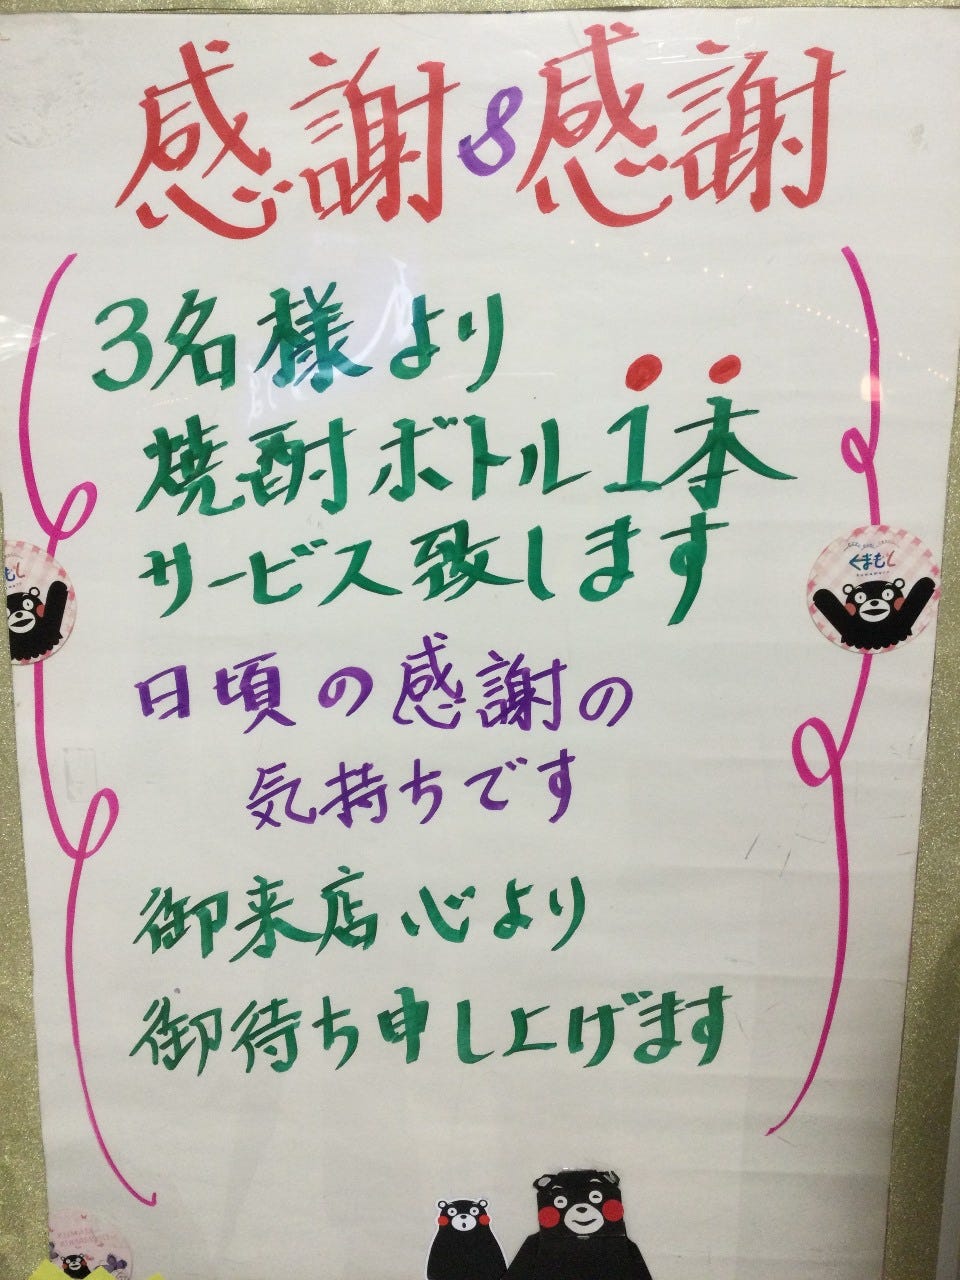 感謝&感謝
3名様より
焼酎ボトル1本
サービス致します
日頃の感謝の
気持ちです
御来店心より
御待ち申し上げます
くまもと